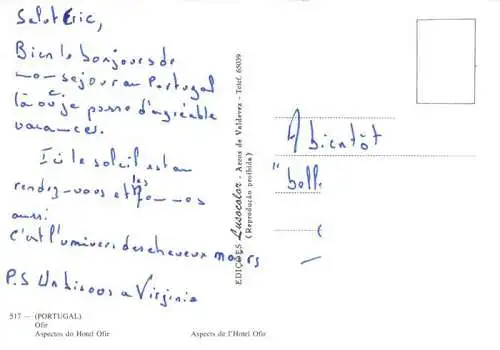 Salut Eric,
Bien le bonjours de
mon sejour au Portugal
là ou je passe d'agréable
vacances.
Ici le soleil est au
rendez-vous et les femmes
aussi
c'est l'univers des cheveux
P.S Un bisous a Virginie
A bientôt
EDIÇÕES Lusocolor - Arcos de Valdevez - Telef. 66039
(Reprodução proibida)
517 — (PORTUGAL)
Ofir
Aspectos do Hotel Ofir
Aspects de l'Hotel Ofir